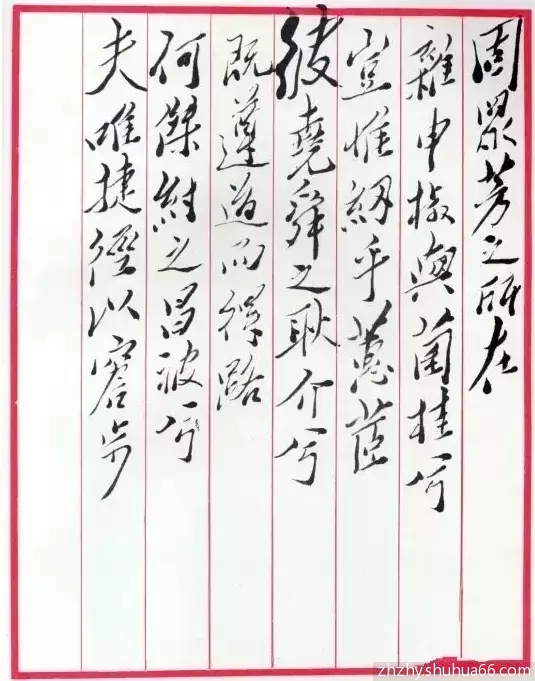 固眾芳之所在
雜申椒與菌桂兮
豈惟紉乎蕙茝
彼堯舜之耿介兮
既遵道而得路
何桀紂之昌被兮
夫唯捷徑以窘步
zhzhyshuhua66.com